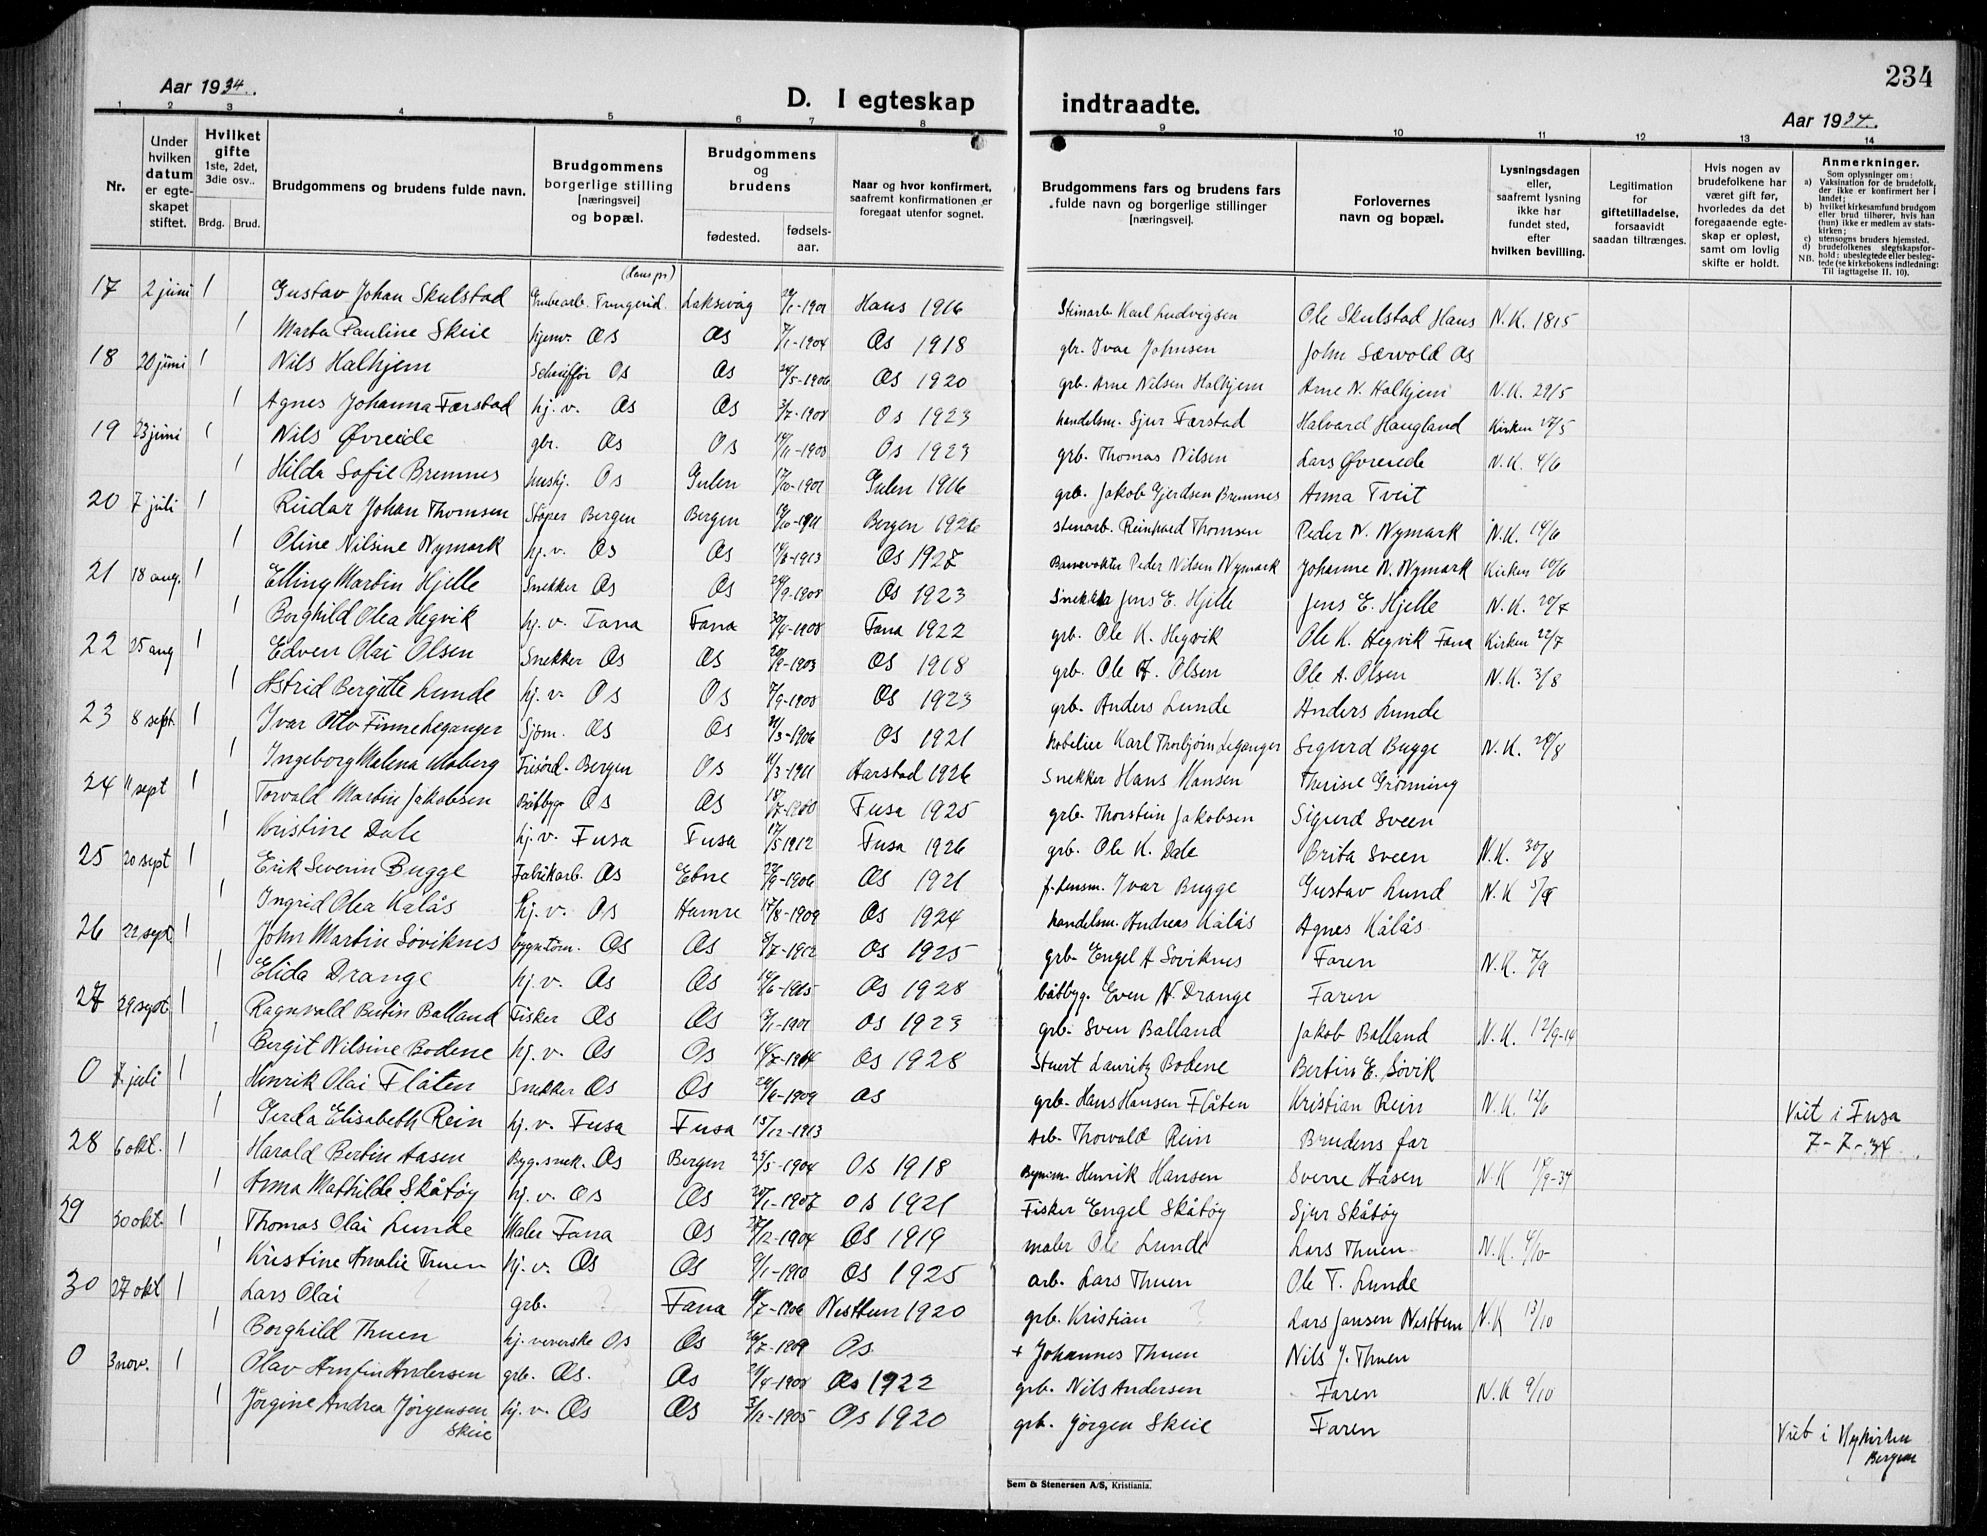 234
Aar 1934.
D. I egteskap indtraadte.
Aar 1934.
1 2 3 4 5 6 7 8 9 10 11 12 13 14
Nr.
Under hvilken datum er egteskapet stiftet.
Hvilket gifte 1ste, 2det, 3die osv..
Brdg. Brud.
Brudgommens og brudens fulde navn.
Brudgommens borgerlige stilling [næringsvei] og bopæl.
Brudgommens og brudens
fødested. fødselsaar.
Naar og hvor konfirmert, saafremt konfirmationen er foregaat utenfor sognet.
Brudgommens fars og brudens fars fulde navn og borgerlige stillinger [næringsvei].
Forlovernes navn og bopæl.
Lysningsdagen eller, saafremt lysning ikke har fundet sted, efter hvilken bevilling.
Legitimation for giftetilladelse, forsaavidt saadan tiltrænges.
Hvis nogen av brudefolkene har været gift før, hvorledes da det foregaaende egteskap er opløst, samt om lovlig skifte er holdt.
Anmerkninger.
Som oplysninger om:
a) Vaksination for de brudefolk, der ikke er konfirmert her i landet;
b) hvilket kirkesamfund brudgom eller brud tilhører, hvis han (hun) ikke er medlem av statskirken;
c) utensogns bruders hjemsted.
d) brudefolkenes slegtskapsforhold: ubeslegtede eller beslegtede (se kirkebokens indledning:
NB. Til iagttagelse II. 10).
17 2 juni 1 Gustav Johan Skulstad Grubearb. Laksevåg -1901 Haus 1916 Stenarb. Karl Ludvigsen Ole Skulstad Haus N.K. 18/5
1 Marta Pauline Skeie hjemv. Os Os 7/1-1904 Os 1918 gbr. Ivar Johnsen John Særvold Os
18 20 juni 1 Nils Halhjem Os Os 24/5-1906 Os 1920 grb. Arne Nilsen Halhjem Arne N. Halhjem N.K. 29/5
1 Agnes Johanna Færstad hj. v. Os Os 3/7-1908 Os 1923 handelsm. Sjur Færstad Halvard Haugland Kirken 27/5
19 23 juni 1 Nils Øvreeide gbr. Os Os 14/11-1908 Os 1923 grb. Thomas Nilsen Lars Øvreeide N.K. 4/6
1 Hilda Sofie Bremnes hushj. Os Gulen 17/10-1901 Gulen 1916 grb. Jakob Gjerdsen Bremnes Anna Tveit
20 7 juli 1 Reidar Johan Thomsen Støper Bergen Bergen 12/10-1911 Bergen 1926 stenarb. Reinhard Thomsen Peder N. Nymark N.K. 14/6
1 Oline Nilsine Nymark hj. v. Os Os 19/8-1913 Os 1928 Banevokter Peder Nilsen Nymark Johanne N. Nymark Kirken 10/6
21 18 aug. 1 Elling Martin Hjelle Snekker Os Os 24/9-1908 Os 1923 Snekker Jens E. Hjelle Jens E. Hjelle N.K. 20/7
1 Borghild Olea Hegvik hj. v. Fana Fana 30/4-1908 Fana 1922 grb. Ole K. Hegvik Ole K. Hegvik Fana Kirken 22/7
22 25 aug 1 Edven Olai Olsen Snekker Os Os 20/9-1903 Os 1918 grb. Ole A. Olsen Ole A. Olsen N.K. 3/8
1 Astrid Bergitte Lunde hj. v. Os Os 7/9-1908 Os 1923 grb. Anders Lunde Anders Lunde
23 8 sept. 1 Ivar Otto Finne Leganger Sjøm. Os Os 31/3-1906 Os 1921 hotelier Karl Thorbjørn Leganger Sigurd Bugge N.K. 28/8
1 Ingeborg Malena Moberg Frisørd. Bergen Os 11/3-1911 Harstad 1926 Snekker Hans Hansen Therese Grønning
24 11 sept 1 Torvald Martin Jakobsen Båtbygg. Os Os 18/7-1910 Fusa 1925 grb. Thorstein Jakobsen Sigurd Sveen
1 Kristine Dale hj. v. Fusa Fusa 17/5 1912 Fusa 1926 grb. Ole K. Dale Brita Sveen N.K. 30/8
25 20 sept 1 Erik Severin Bugge Fabrikarb. Os Etne 22/9-1906 Os 1921 f. lensm. Ivar Bugge Gustav Lund N.K 5/9
1 Ingrid Olea Kålås hj. v. Os Hamre 17/8-1909 Os 1924 handelsm. Andreas Kålås Agnes Kålås
26 22 sept. 1 John Martin Søviknes bygn.tøm. Os Os 8/7-1912 Os 1925 grb. Engel A Søviknes Faren N.K. 7/9
1 Elida Drange hj. v. Os Os 10/6-1915 Os 1928 båtbyg. Even N. Drange Faren
27 29 sept. 1 Ragnvald Bertin Balland Fisker Os Os 3/1-1901 Os 1923 grb. Sven Balland Jakob Balland N.K. 12/9-14
1 Bergit Nilsine Bodene hj. v. Os Os 14/7-1914 Os 1928 Stuert Lauritz Bodene Bertin E. Søvik
0 7. juli 1 Henrik Olai Flåten Snekker Os Os 24/6-1909 Os grb. Hans Hansen Flåten Kristian Rein N.K. 12/6
1 Gerda Elisabeth Rein hj. v. Fusa Fusa 15/12-1913 Arb. Thorvald Rein Brudens far Viet i Fusa 7-7-34.
28 6 okt. 1 Harald Bertin Aasen Byg.snek. Os Bergen 25/5-1904 Os 1918 Henrik Hansen Sverre Aasen N.K 18/9-34
1 Anna Mathilde Skåtøy hj. v. Os Os 28/1-1907 Os 1921 Fisker Engel Skåtøy Sjur Skåtøy
29 20 okt. 1 Thomas Olai Lunde Maler Fana Os 27/12-1904 Os 1919 maler Ole Lunde Lars Thuen N.K. 4/10
1 Kristine Amalie Thuen hj. v. Os Os 9/1-1910 Os 1925 arb. Lars Thuen Ole T. Lunde
30 27 okt 1 Lars Olai grb. Fana -1906 Nesttun 1920 grb. Kristian Lars Jansen Nesttun N.K 13/10
1 Borghild Thuen hj. veverske Os Os 26/7-1909 Os + Johannes Thuen Nils J. Thuen
0 3 nov. 1 Olav Arnfin Andersen grb. Os. Os 21/4-1908 Os 1922 grb. Nils Andersen Faren N.K 9/10
1 Jørgine Andrea Jørgensen Skeie hj. v. Os Os 3/12-1905 Os 1920 grb. Jørgen Skeie Faren Viet i Nykirken Bergen
Sem & Stenersen A/S, Kristiania.